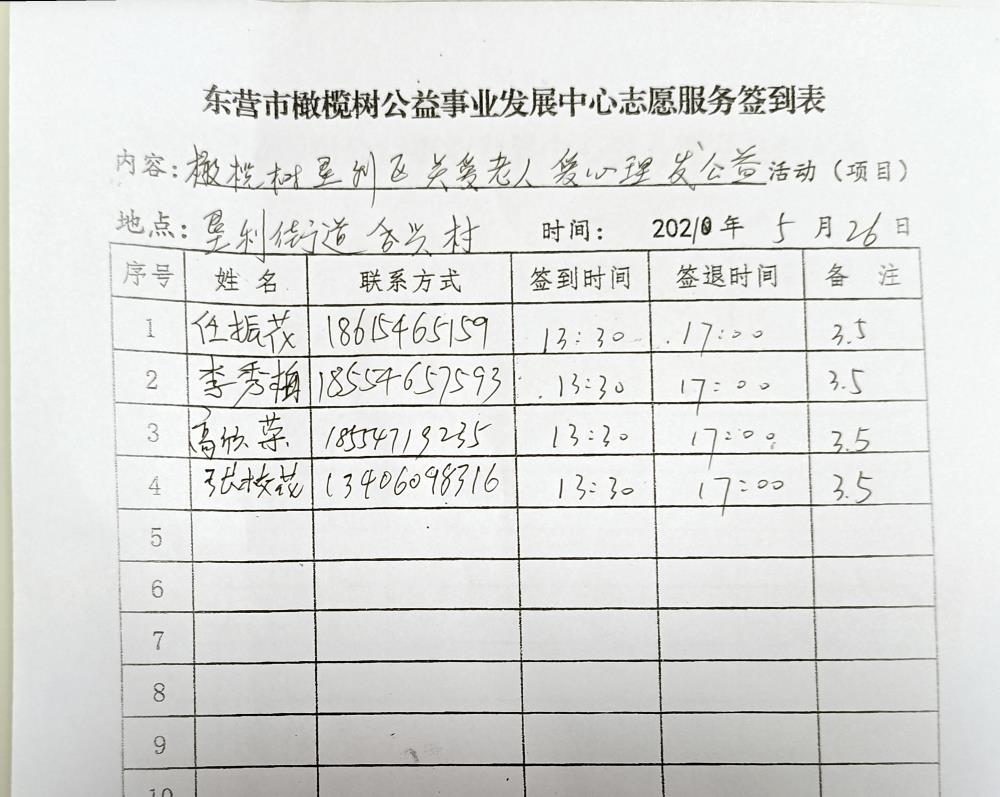 东营市橄榄树公益事业发展中心志愿服务签到表
内容：橄榄树垦利区关爱老人爱心理发公益活动（项目）
地点：垦利街道合兴村 时间：2021年5月26日
序号 姓名 联系方式 签到时间 签退时间 备注
1 任振茂 18615465159 13:30 17:00 3.5
2 李秀梅 18554657593 13:30 17:00 3.5
3 高欣荣 18554719235 13:30 17:00 3.5
4 张枝茂 13406098316 13:30 17:00 3.5
5
6
7
8
9
10